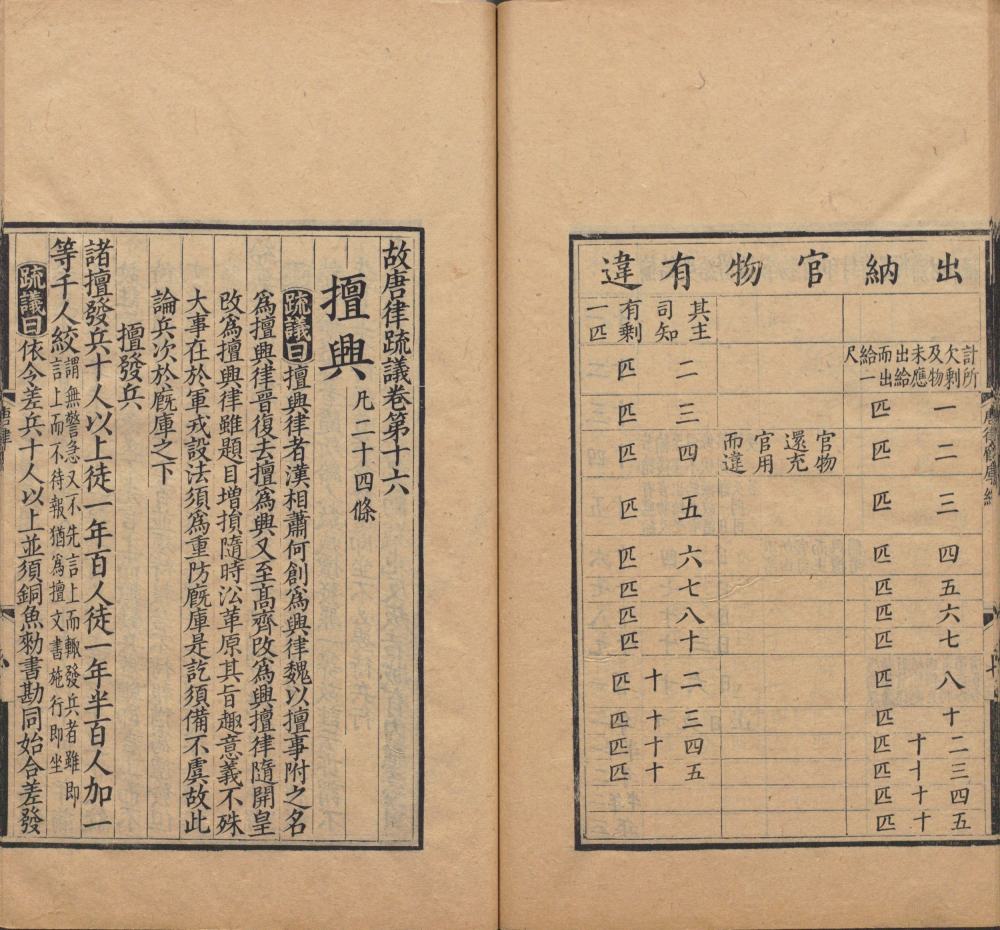 出納官物有違
計所欠剩及物未應出給而出給一尺
一匹
二匹
三匹
四匹
五匹
六匹
七匹
八匹
十匹
二十匹
三十匹
四十匹
五十匹
官物還充官用而違
其主司知有剩一匹
二匹
三匹
四匹
五匹
六匹
七匹
八匹
十匹
二十匹
三十匹
四十匹
五十匹
故唐律疏議卷第十六
擅興 凡二十四條
疏議曰擅興律者漢相蕭何創爲興律魏以擅事附之名
爲擅興律晉復去擅爲興又至髙齊改爲興擅律隨開皇
改爲擅興律雖題目增損隨時沿革原其旨趣意義不殊
大事在於軍戎設法須爲重防廐庫是訖須備不虞故此
論兵次於廐庫之下
擅發兵
諸擅發兵十人以上徒一年百人徒一年半百人加一
等千人絞謂無警急又不先言上而輙發兵者雖即言上而不待報猶爲擅文書施行即坐
疏議曰依令差兵十人以上並須銅魚勑書勘同始合差發